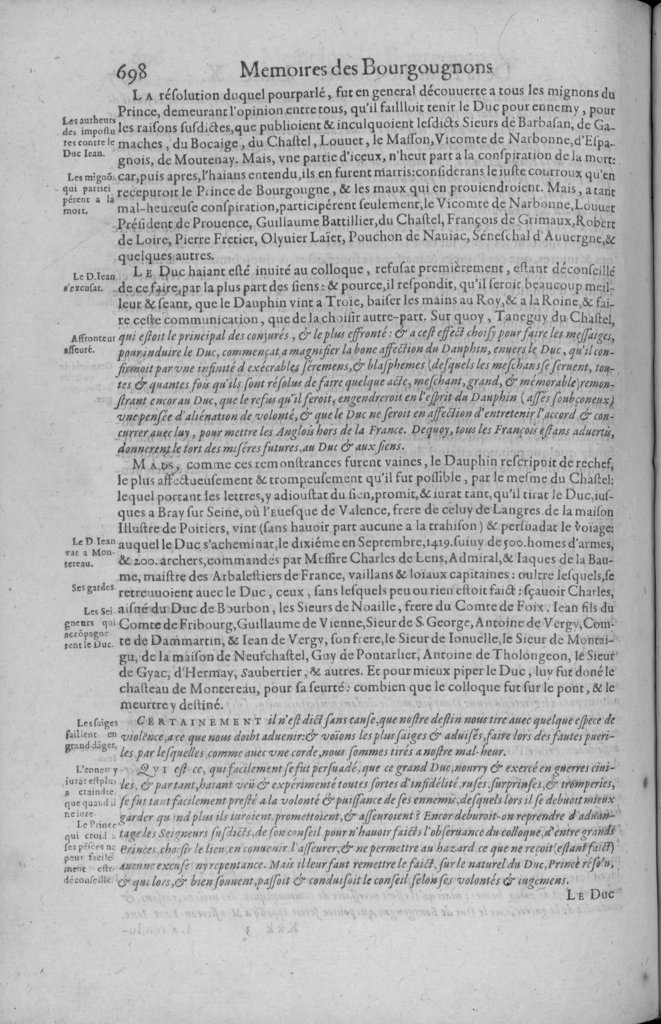 698 Memoires des Bourgougnons
LA résolution duquel pourparlé, fut en general découuerte a tous les mignons du
Prince, demeurant l'opinion entre tous, qu'il failloit tenir le Duc pour ennemy, pour
les raisons susdictes, que publioient & inculquoient lesdicts Sieurs de Barbasan, de Ga-
maches, du Bocaige, du Chastel, Louuet, le Masson, Vicomte de Narbonne, d'Espa-
gnois, de Moutenay. Mais, vne partie d'iceux, n'heut part a la conspiration de la mort:
car, puis apres, l'haians entendu, ils en furent marris: considerans le iuste courroux qu'en
recepuroit le Prince de Bourgougne, & les maux qui en prouiendroient. Mais, a tant
mal-heureuse conspiration, participérent seulement, le Vicomte de Narbonne, Louuet
Président de Prouence, Guillaume Battillier, du Chastel, François de Grimaux, Robert
de Loire, Pierre Fretier, Olyuier Laïet, Pouchon de Nauiac, Séneschal d'Auuergne, &
quelques autres.
Les autheurs
des impostu
res contre le
Duc Iean.
Les mignõs
qui partici
pérent a la
mort.
LE Duc haiant esté inuité au colloque, refusat premièrement, estant déconseillé
de ce faire, par la plus part des siens: & pource, il respondit, qu'il seroit beaucoup meil-
leur & seant, que le Dauphin vint a Troie, baiser les mains au Roy, & a la Roine, & fai-
re ceste communication, que de la choisir autre-part. Sur quoy, Taneguy du Chastel,
qui estoit le principal des conjurés, & le plus effronté: & a cest effect choisy pour faire les messaiges,
pour induire le Duc, commençat a magnifier la bone affection du Dauphin, enuers le Duc, qu'il con-
firmoit par vne infinité d'exécrables seremens, & blasphemes (desquels les meschans se seruent, tou-
tes & quantes fois qu'ils sont résolus de faire quelque acte, meschant, grand, & mémorable) remon-
strant encor au Duc, que le refus qu'il feroit, engendreroit en l'esprit du Dauphin (assés soubçoneux)
vne pensée d'aliénation de volonté, & que le Duc ne seroit en affection d'entretenir l'accord & con-
currer auec luy, pour mettre les Anglois hors de la France. De quoy, tous les François estans aduertis,
donneroient le tort des miséres futures, au Duc & aux siens.
Le D. Iean
s'excusat.
Affronteur
asseuré.
MADS, comme ces remonstrances furent vaines, le Dauphin rescripuit de rechef,
le plus affectueusement & trompeusement qu'il fut possible, par le mesme du Chastel:
lequel portant les lettres, y adioustat du sien, promit, & iurat tant, qu'il tirat le Duc, ius-
ques a Bray sur Seine, où l'Euesque de Valence, frere de celuy de Langres, de la maison
Illustre de Poitiers, vint (sans hauoir part aucune a la trahison) & persuadat le voiage:
auquel le Duc s'acheminat, le dixiéme en Septembre, 1419. suiuy de 500. homes d'armes,
& 200. archers, commandés par Messire Charles de Lens, Admiral, & Iaques de la Bau-
me, maistre des Arbalestiers de France, vaillans & loiaux capitaines: oultre lesquels, se
retreuuoient auec le Duc, ceux, sans lesquels peu ou rien estoit faict: sçauoir Charles,
aisné du Duc de Bourbon, les Sieurs de Noaille, frere du Comte de Foix, Iean fils du
Comte de Fribourg, Guillaume de Vienne, Sieur de S. George, Antoine de Vergy, Com-
te de Dammartin, & Iean de Vergy, son frere, le Sieur de Ionuelle, le Sieur de Montai-
gu, de la maison de Neufchastel, Guy de Pontarlier, Antoine de Tholongeon, le Sieur
de Gyac, d'Hermay, Saubertier, & autres. Et pour mieux piper le Duc, luy fut doné le
chasteau de Montereau, pour sa seurté: combien que le colloque fut sur le pont, & le
meurtre y destiné.
Le D Iean
vat a Mon-
tereau.
Ses gardes.
Les Sei-
gneurs qui
accõpagne
rent le Duc.
CERTAINEMENT il n'est dict sans cause, que nostre destin nous tire auec quelque espece de
violence, a ce que nous doibt aduenir: & voïons les plus saiges & aduisés, faire lors des fautes pueri-
les, par lesquelles, comme auec vne corde, nous sommes tirés a nostre mal-heur.
QVI est-ce, qui facilement se fut persuadé, que ce grand Duc, nourry & exercé en guerres ciui-
les, & partant, haiant veu & expérimenté toutes sortes d'infidélité, ruses, surprinses, & tromperies,
se fut tant facilement presté a la volonté & puissance de ses ennemis, desquels lors il se debuoit mieux
garder quand plus ils iuroient, promettoient, & asseuroient? Encor deburoit-on reprendre d'aduan-
tage les Seigneurs susdicts, de son conseil, pour n'hauoir faicts l'obseruance du colloque, d'entre grands
Princes, choisir le lieu, en conuenir, l'asseurer, & ne permettre au hazard, ce que ne reçoit (estant faict)
aucune excuse ny repentance. Mais il leur faut remettre le faict, sur le naturel du Duc, Prince résolu,
& qui lors, & bien souuent, passoit & conduisoit le conseil, selon ses volontés & iugemens.
Les saiges
faillent en
grand dãger.
L'ennemy
iurat est plus
a craindre,
que quand il
ne iure.
Le Prince
qui croid a
ses pésées ne
peut facile
ment estre
déconseillé.
LE DUC